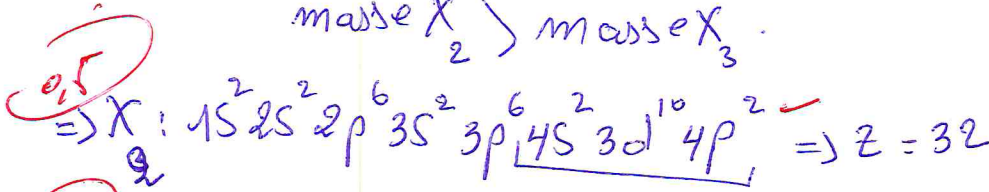 masse X₂ > masse X₃.
0,5
=> X₂ : 1S² 2S² 2p⁶ 3S² 3p⁶ 4S² 3d¹⁰ 4p² => Z = 32